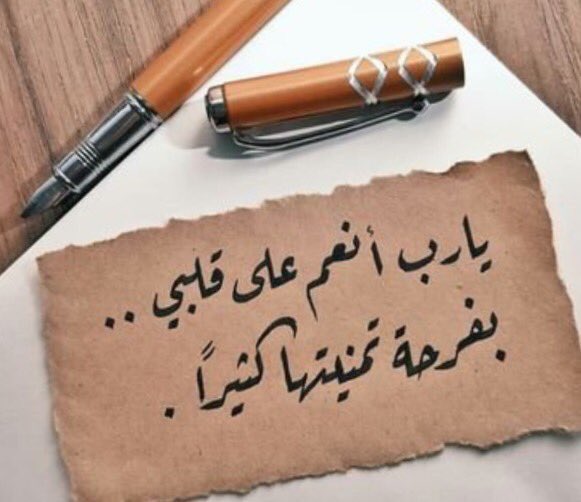 يارب أنعم على قلبي ..
بفرحة تمنيتها كثيراً .